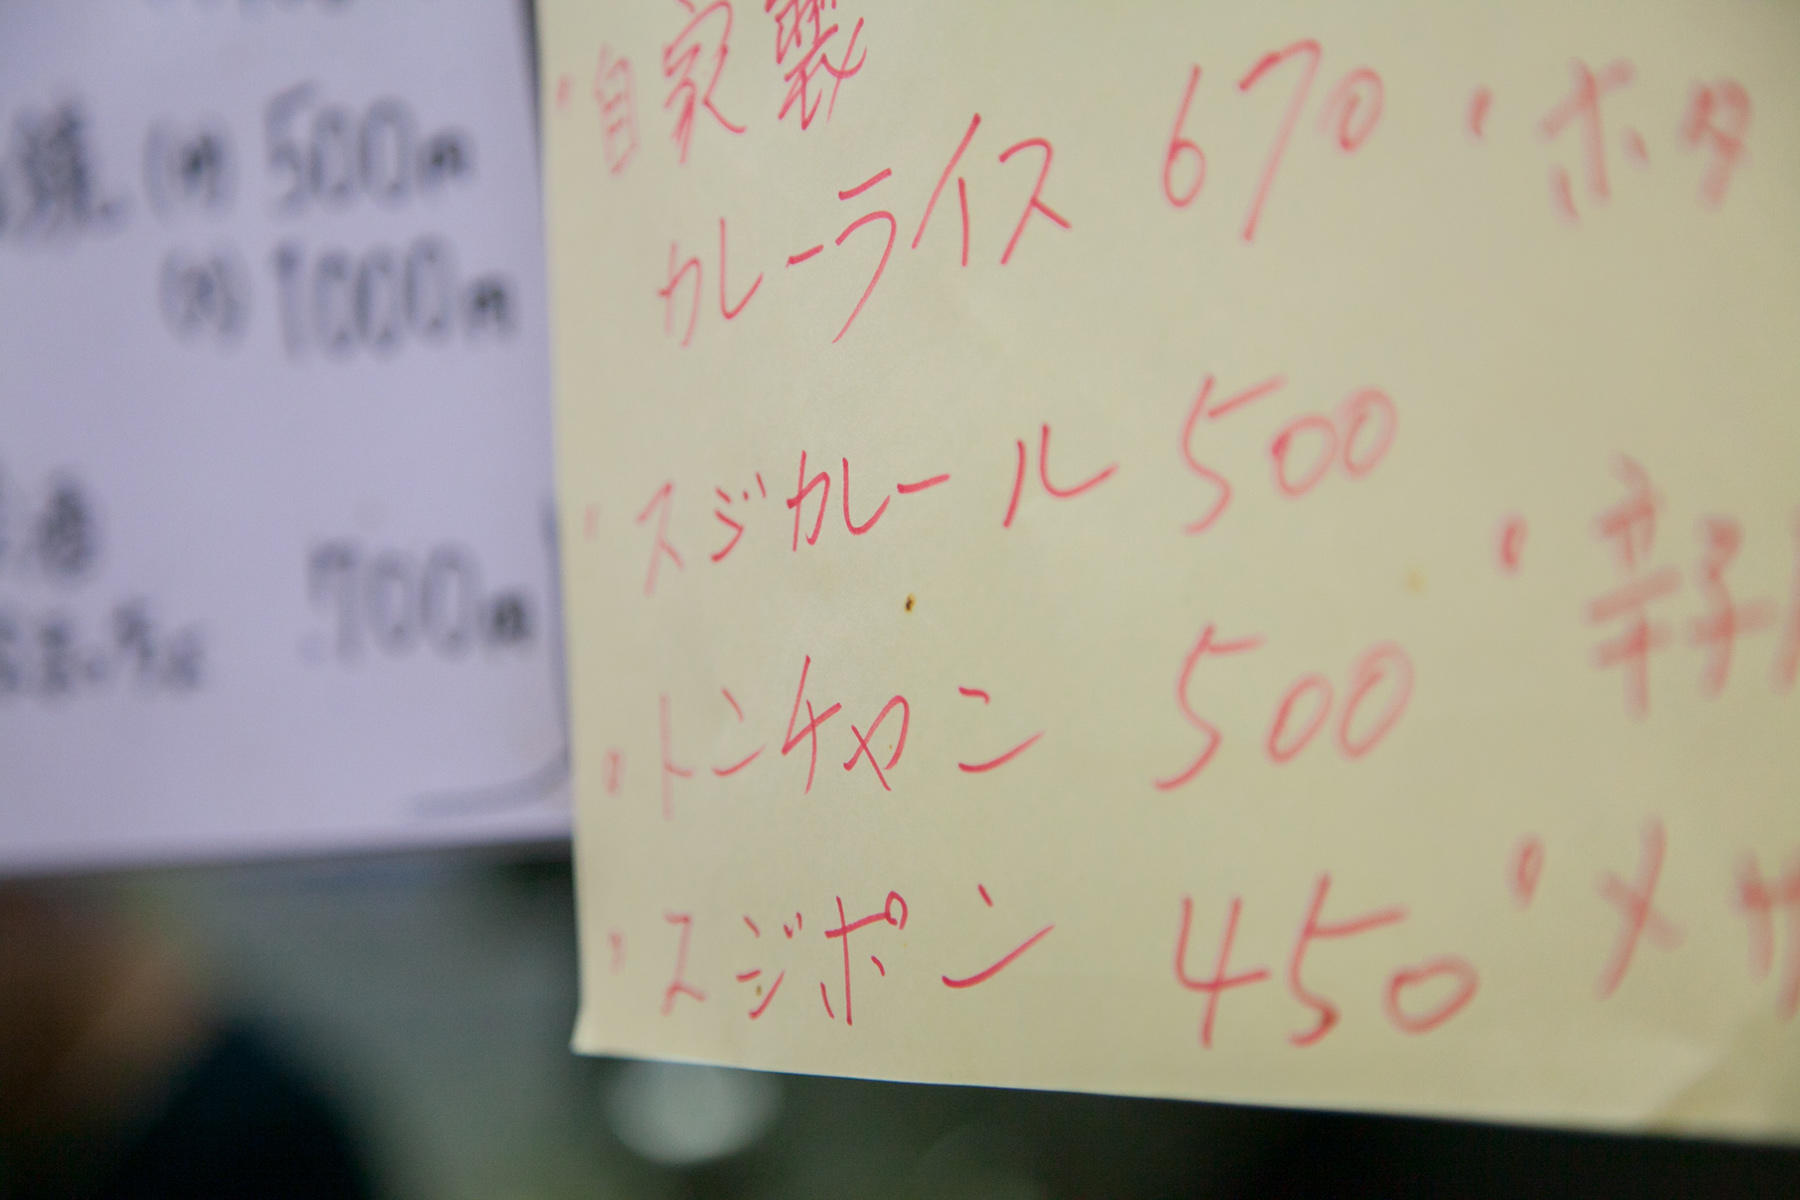 500円
1000円
700円
・自家製
カレーライス 670
・スジカレー ル 500
・トンチャン 500
・スジポン 450
・ホタ
・辛子
・メザ